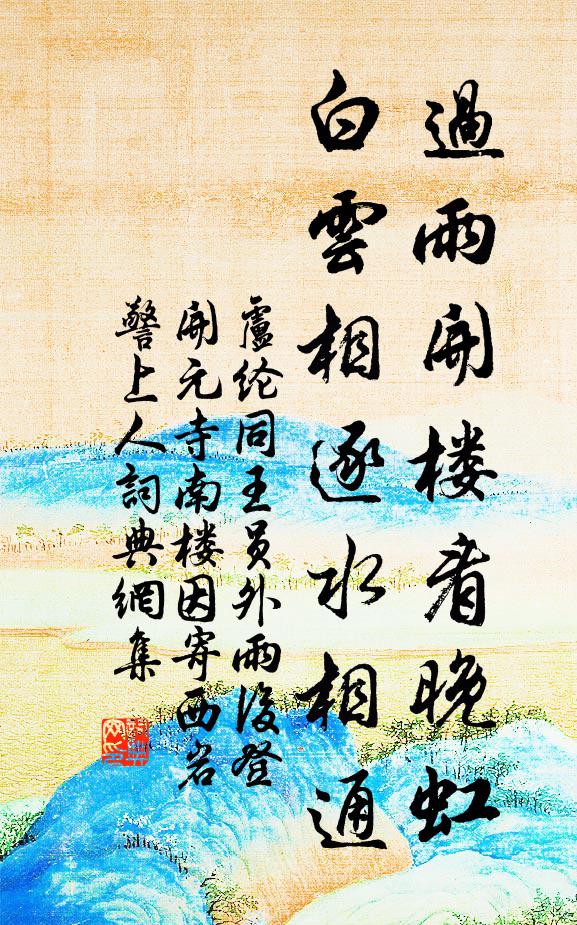 過雨開楼看晚虹
白雲相逐水相通
盧纶同王员外雨後登
開元寺南楼因寄西岩
警上人詞典網集